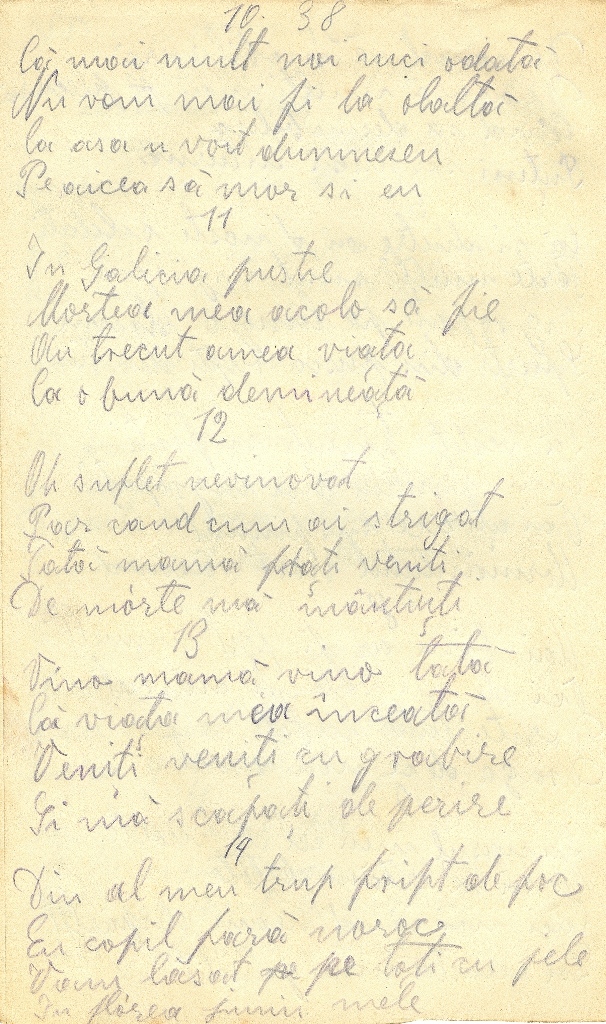 10. 38
Că mai mult noi nici odată
Nu vom mai fi la olaltă
Ca asa u voit dumnezeu
Pe aicea să mor si eu
11
In Galicia pustie
Mortea mea acolo să fie
Au trecut amea viața
Ca o bună demineață
12
Oh suflet nevinovat
Par cand cum ai strigat
Tată mamă frati veniti
De mórte mă mântuiți
13
Vino mamă vino tată
Că viața mea înceată
Veniți veniti cu grabire
Si mă scapați de perire
14
Din al meu trup fript de foc
Eu copil fară noroc
Vam lăsat pe toti cu jele
In flórea junii mele